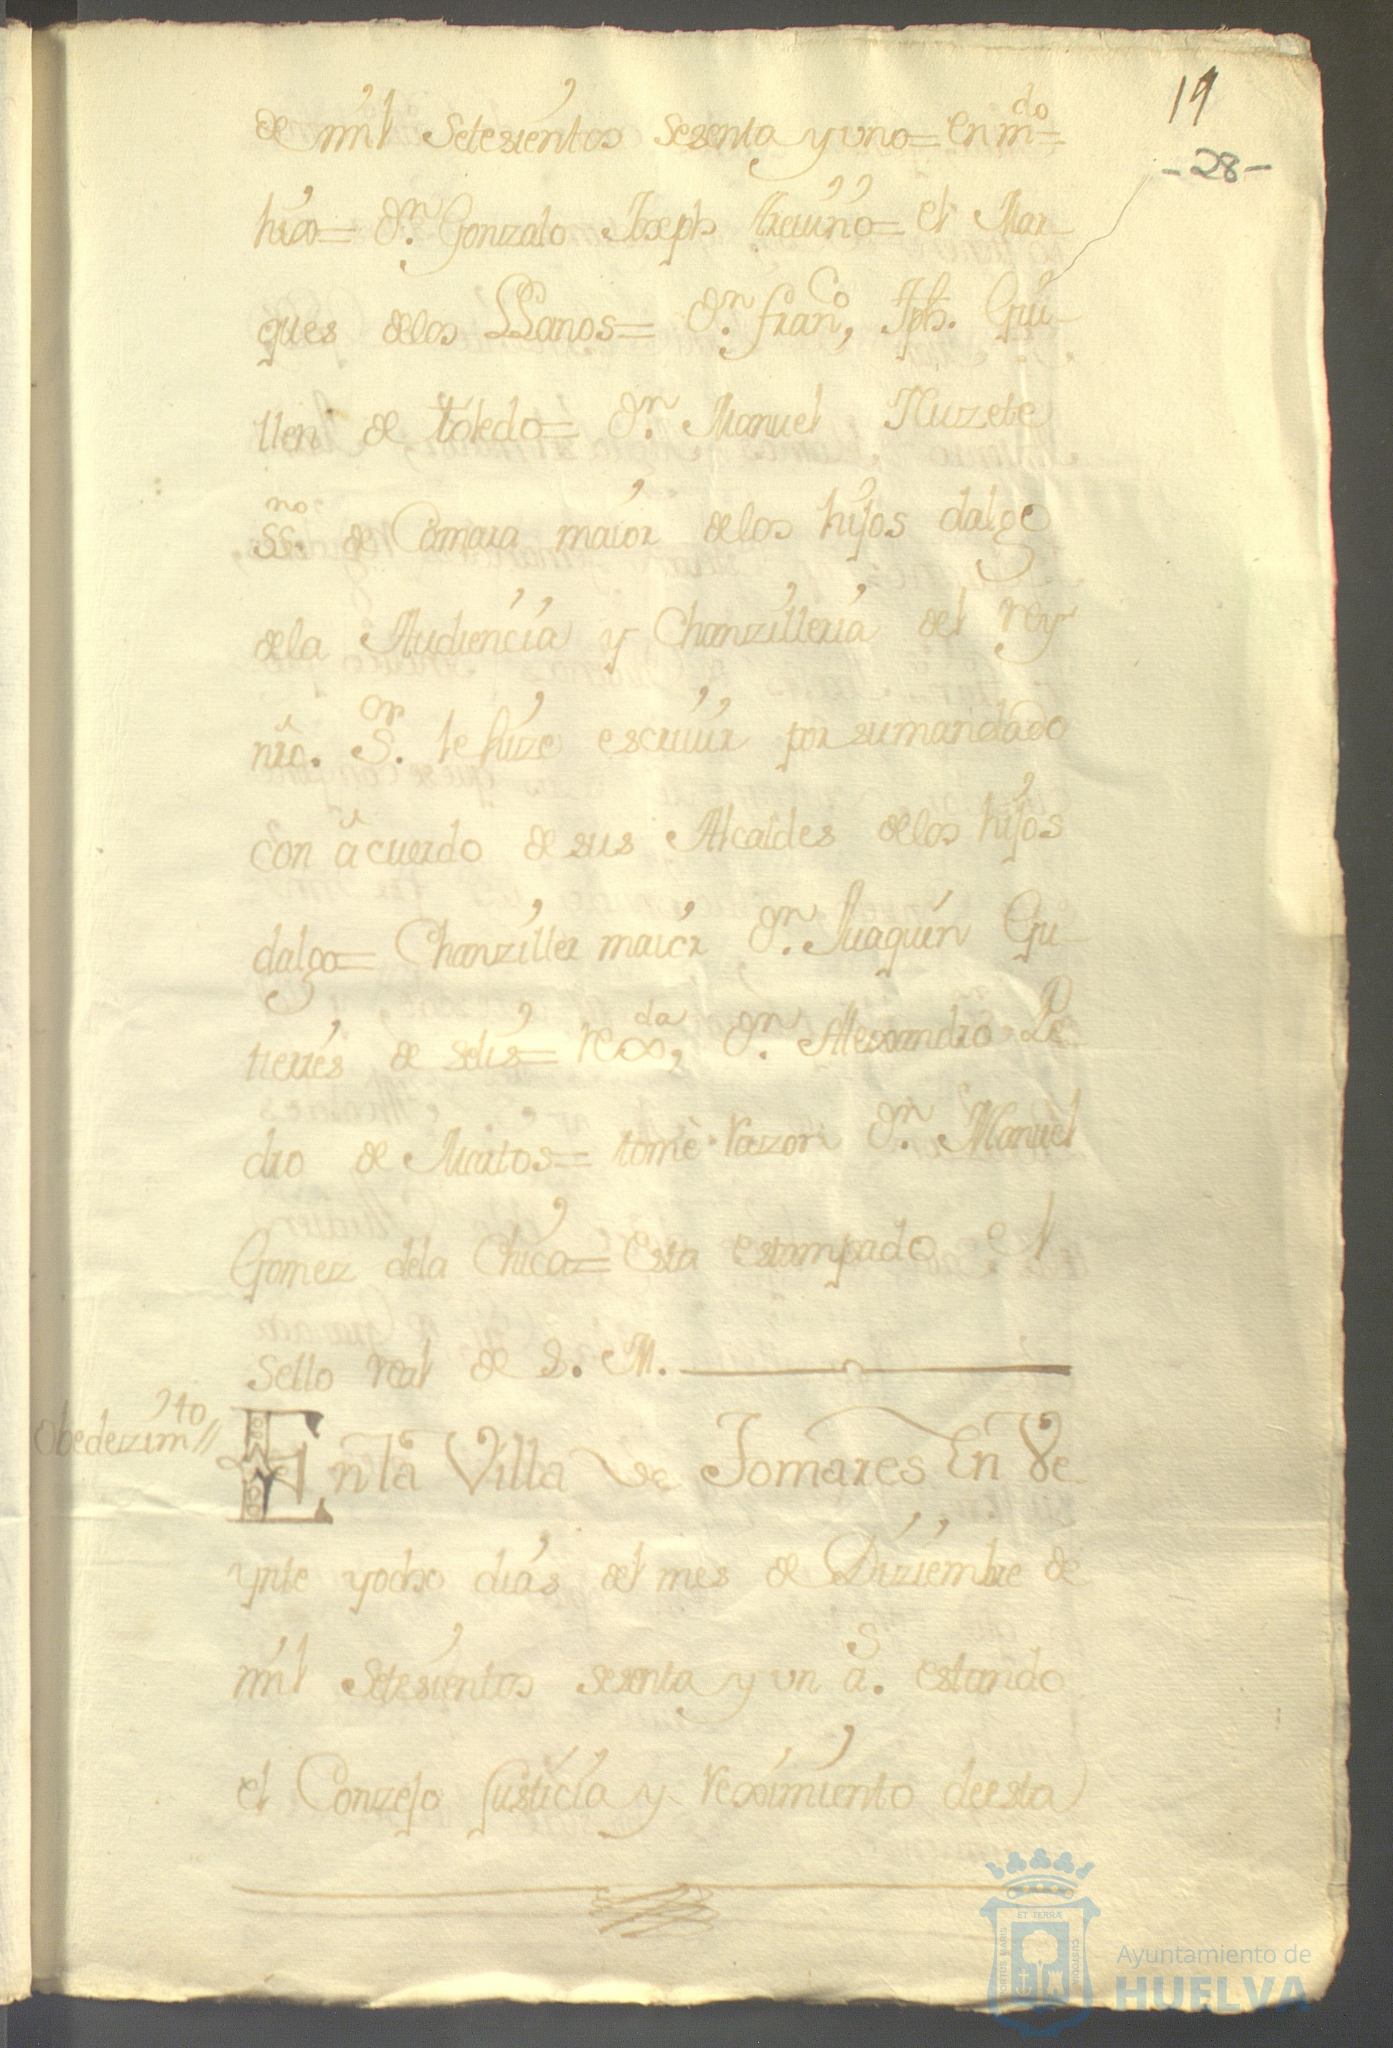 19
-28-
de mil Setesientos sesenta y uno= en m.do=
hizo= Dn. Gonzalo Joseph treviño= el Mar-
ques delos LLanos= Dn. franco, Jph. Gui-
llen de toledo= Dn. Manuel Nuzete
ssno. de Camara maior delos hijos dalgo
dela Audiencia y Chanzilleria del rey
nro. Sor. le hize escriuir por sumandado
con acuerdo de sus Alcaldes delos hijos
dalgo= Chanziller maior Dn. Juaquin Gu-
tierres de solis= rexda, Dn. Alexandro Pe-
dro de Martos= tomè razon Dn. Manuel
Gomez dela Chica= Esta estampado el
Sello real de S. M.
Obedezimto//
En la Villa de Tomares En Ve
ynte yocho dias del mes de Diziembre de
mil Setesientos sesenta y un as. estando
el Conzejo Justicia y reximiento deesta
PORTUS MARIS
ET TERRÆ
CUSTODIA
Ayuntamiento de
HUELVA